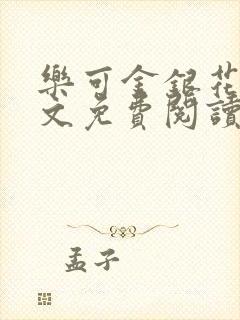 樂可金銀花
文免費閱讀
孟子